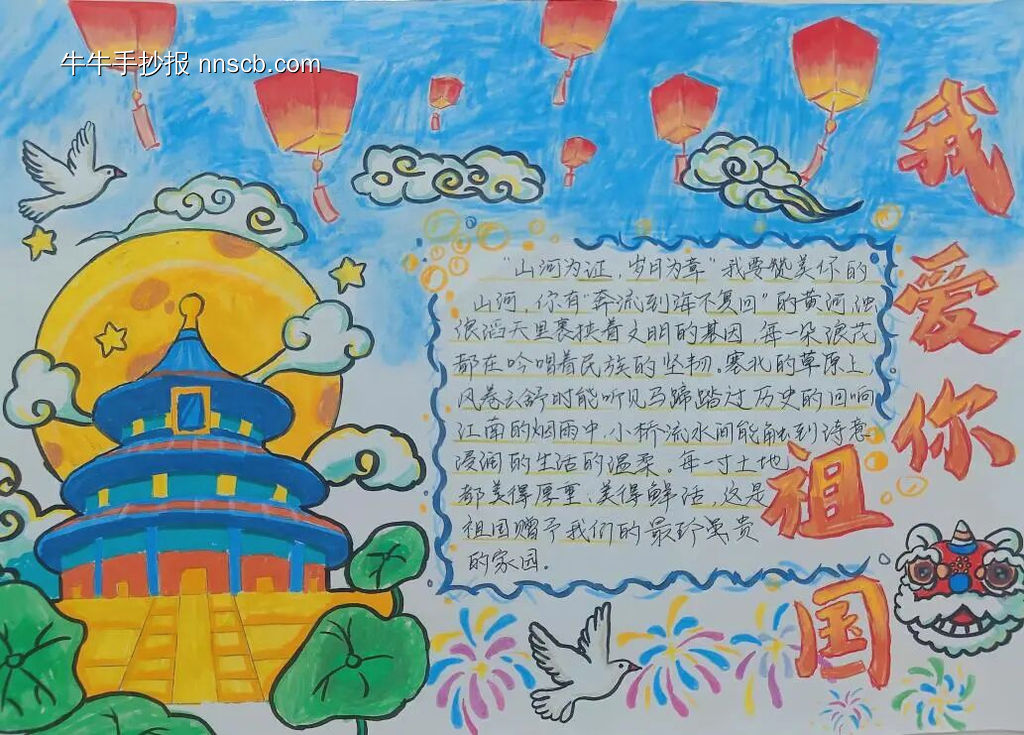 牛牛手抄报 nnscb.com
我爱你祖国
"山河为证，岁月为章"我要赞美你的
山河，你有"奔流到海不复回"的黄河浊
浪滔天里裹挟着文明的基因，每一朵浪花
都在吟唱着民族的坚韧。塞北的草原上，
风卷云舒时能听见马蹄踏过历史的回响
江南的烟雨中，小桥流水间能触到诗意
浸润的生活的温柔。每一寸土地
都美得厚重、美得鲜活，这是
祖国赠予我们的最珍贵
的家园。